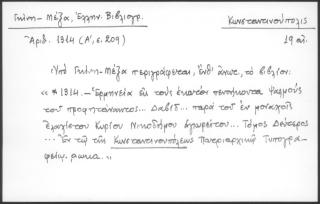 Γκίνη - Μέξα, Ἑλλην. Βιβλιογρ.
Κωνσταντινούπολις
Ἀριθ. 1314 (Α', σ. 209)
19 αἰ.
Ὑπὸ Γκίνη-Μέξα περιγράφεται, ἔνθ' ἀνωτ., τὸ βιβλίον:
«*1314.- Ἑρμηνεία εἰς τοὺς ἑκατὸν πεντήκοντα Ψαλμοὺς
τοῦ προφητάνακτος... Δαβὶδ... παρὰ τοῦ ἐν μοναχοῖς
ἐλαχίστου Κυρίου Νικοδήμου ἁγιορείτου... Τόμος Δεύτερος
... Ἐν τῷ τῆς Κωνσταντινουπόλεως Πατριαρχικῷ Τυπογρα-
φείῳ,